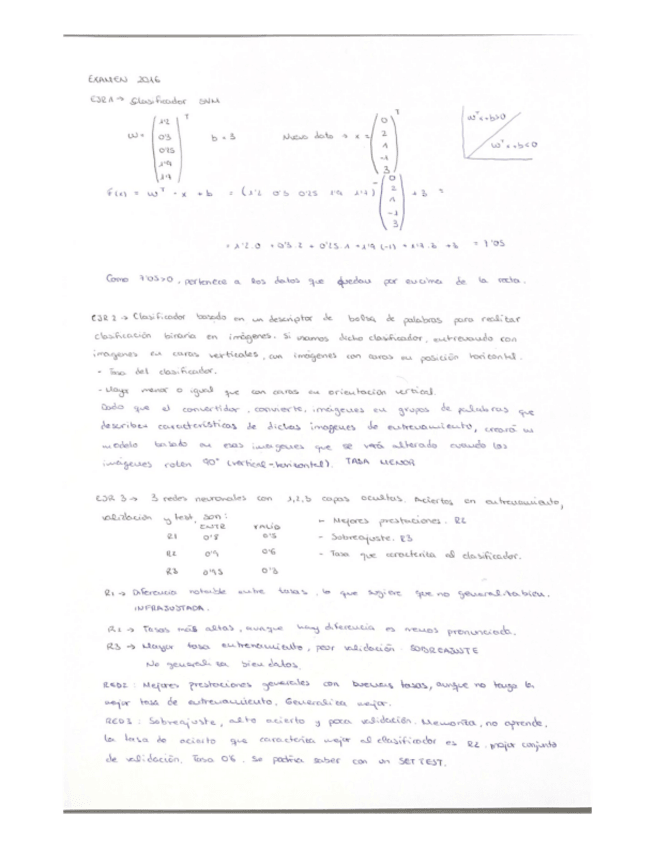 EXAMEN 2016
EJR 1 → Clasificador SVM
w = (1'2 0'3 0'25 1'4 1'4)ᵀ b = 3 Nuevo dato → x = (0 2 1 -1 3)ᵀ wᵀx+b>0 wᵀx+b<0
F(x) = wᵀ · x + b = (1'2 0'3 0'25 1'4 1'4) (0 2 1 -1 3) + 3 =
= 1'2·0 + 0'3·2 + 0'25·1 + 1'4·(-1) + 1'4·3 + 3 = 7'05
Como 7'05>0, pertenece a los datos que quedan por encima de la recta.
EJR 2 → Clasificador basado en un descriptor de bolsa de palabras para realizar
clasificación binaria en imágenes. Si usamos dicho clasificador, entrenando con
imágenes en caras verticales, con imágenes con caras en posición horizontal.
- Tasa del clasificador.
- Haya menor o igual que con caras en orientación vertical.
Dado que el convertidor, convierte, imágenes en grupos de palabras que
describen características de dichas imágenes de entrenamiento, creará un
modelo basado en esas imágenes que se verá alterado cuando las
imágenes roten 90° (vertical-horizontal). TASA MENOR
EJR 3 → 3 redes neuronales con 1,2,3 capas ocultas. Aciertos en entrenamiento,
validación y test, son:
ENTR VALID - Mejores prestaciones. R2
R1 0'8 0'5 - Sobreajuste. R3
R2 0'9 0'6 - Tasa que caracteriza al clasificador.
R3 0'95 0'3
R1 → Diferencia notable entre tasas, lo que sugiere que no generaliza bien.
INFRAJUSTADA.
R2 → Tasas más altas, aunque hay diferencia es menos pronunciada.
R3 → Mayor tasa entrenamiento, peor validación: SOBREAJUSTE
No generaliza bien datos.
RED2: Mejores prestaciones generales con buenas tasas, aunque no tenga la
mejor tasa de entrenamiento. Generaliza mejor.
RED3: Sobreajuste, alto acierto y poca validación. Memoriza, no aprende.
La tasa de acierto que caracteriza mejor al clasificador es R2, mejor conjunto
de validación. Tasa 0'6. Se podría saber con un SET TEST.